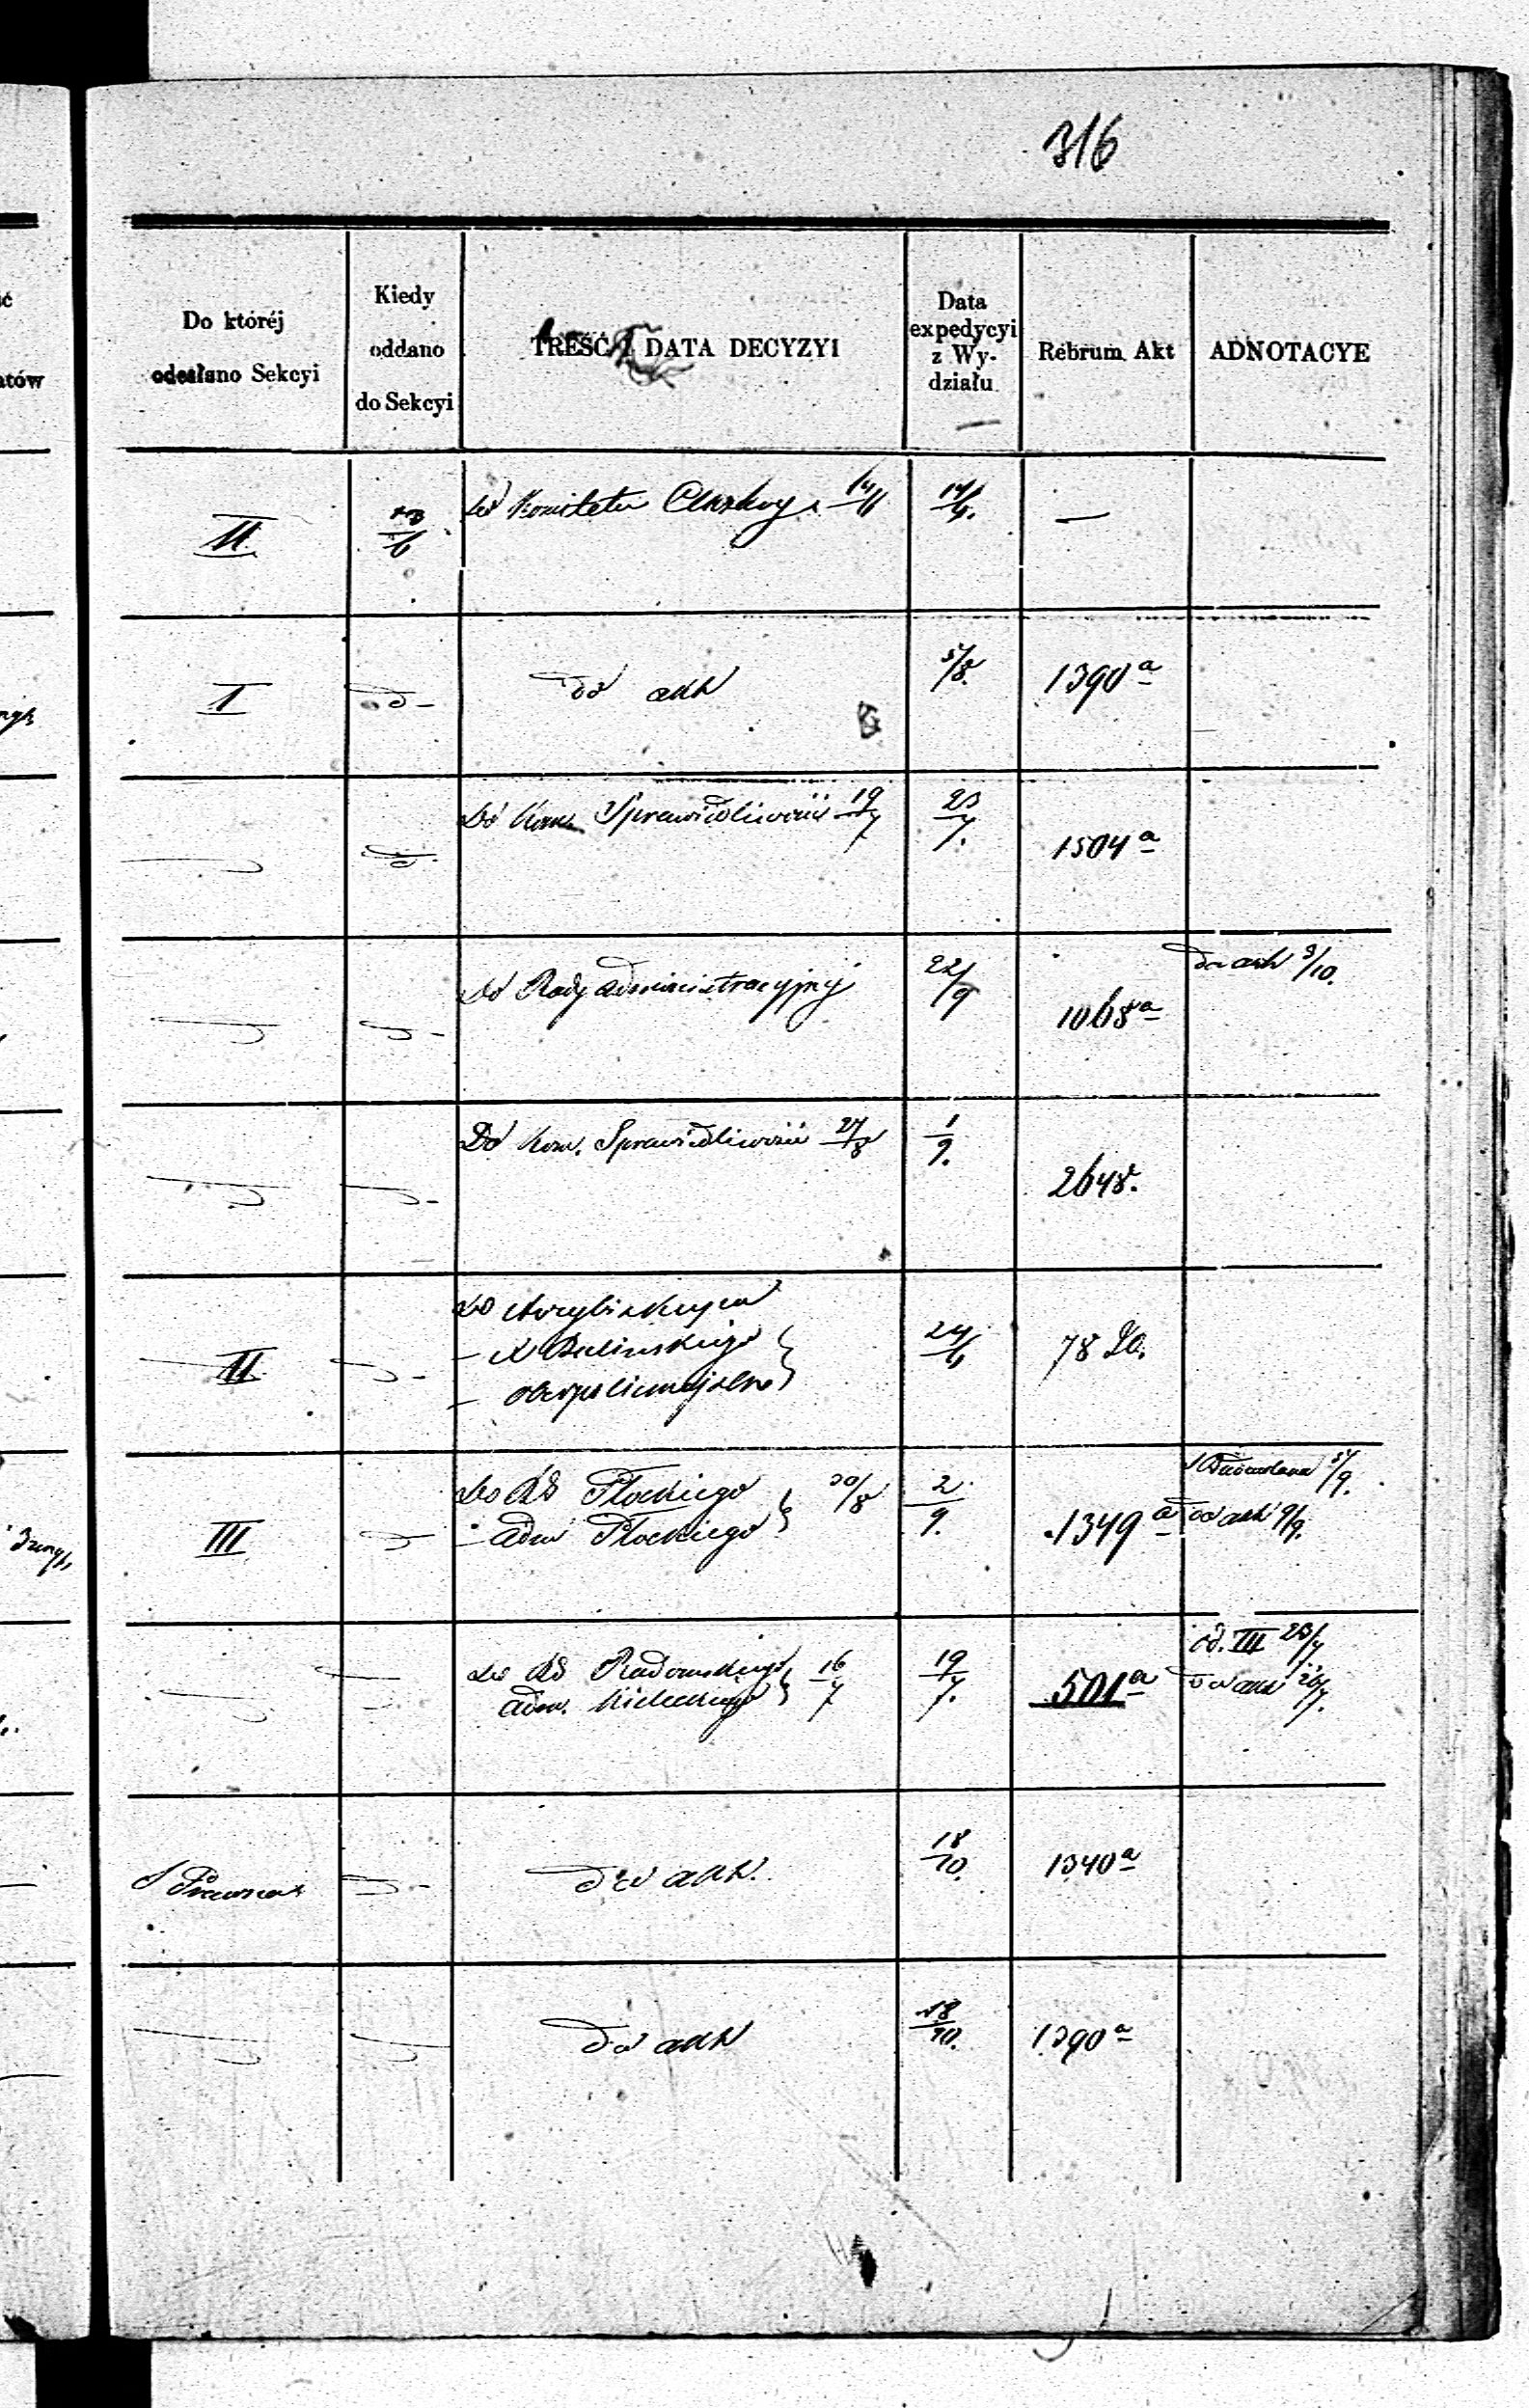 316
Do któréj
odesłano Sekcyi
Kiedy
oddano
do Sekcyi
TREŚĆ I DATA DECYZYI
Data
expedycyi
z Wy-
działu
Rebrum Akt
ADNOTACYE
II
do Komitetu
14/6
—
I
do akt
5/8.
1390 a
Do Kom. Sprawiedliwości 19/7
23/7.
1504 a
Do Rady administracyjnej
22/9
1068 a
do akt 3/10.
Do Kom. Sprawiedliwości 27/8
1/9.
2648.
II
do Arcybiskupa
—
— oberpolicmajstra
24/6
78
III
do RG Płockiego 30/8
— adm Płockiego
2/9.
1349 a
5/9.
do akt 9/9.
do RG Radomskiego 16/7
adm. Kieleckiego
19/7.
501 a
od. III 23/7.
do akt 26/7.
S Prawna
do akt.
18/10.
1340 a
do akt
18/10.
1390 a